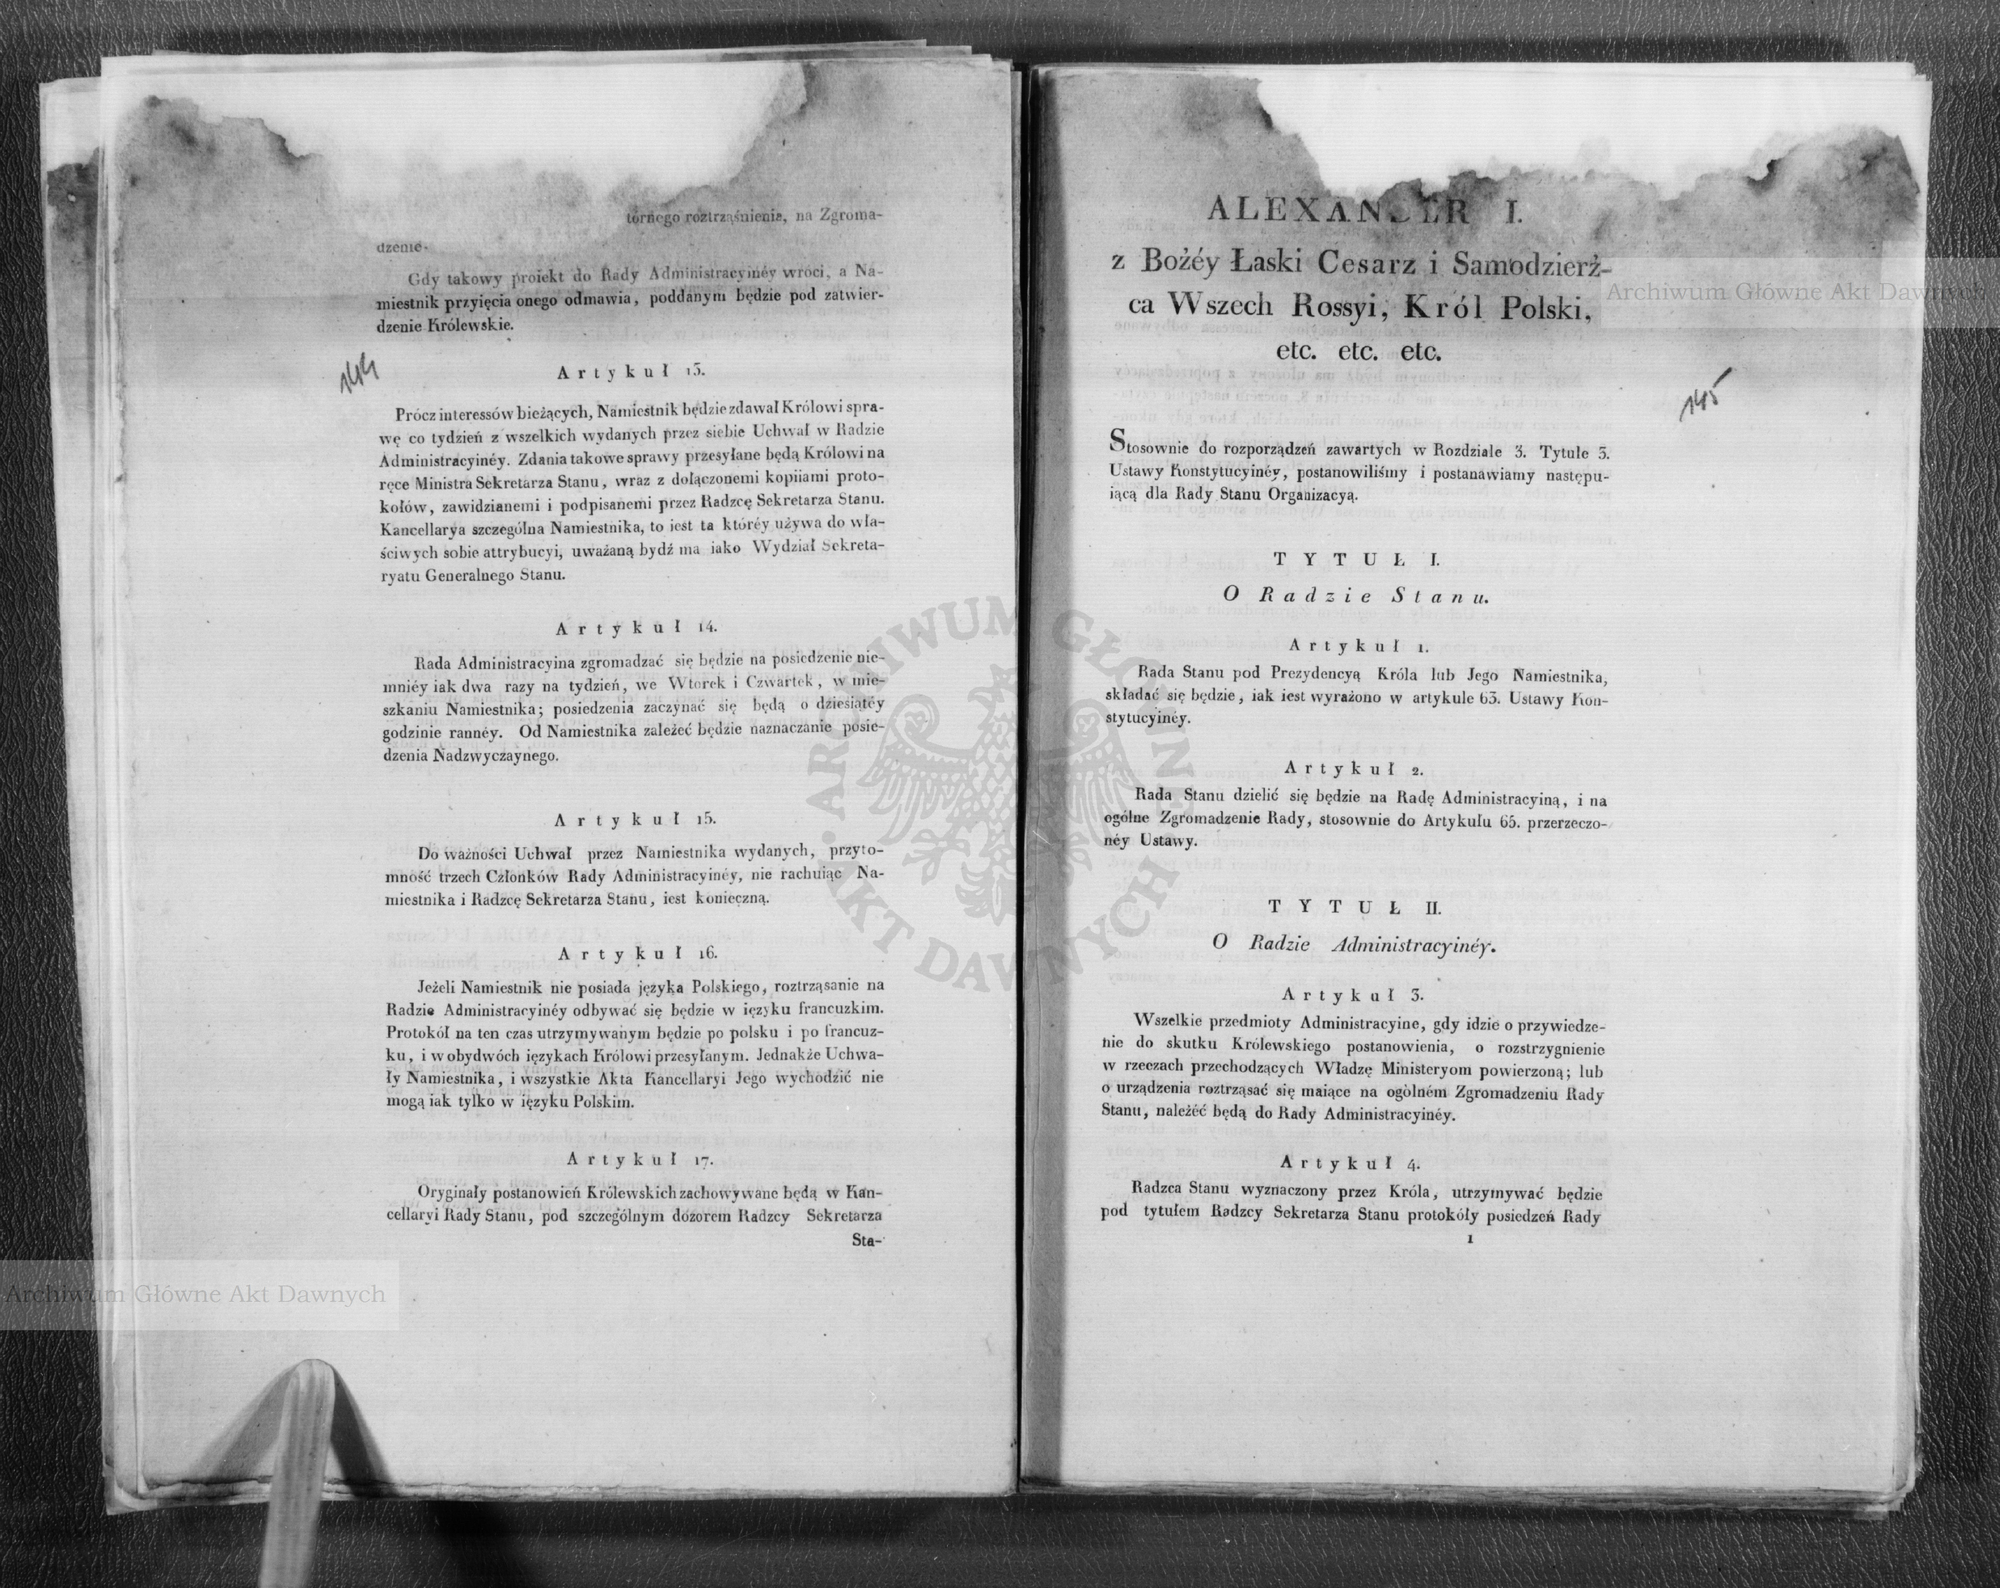 tornego roztrząśnienia, na Zgroma-
dzenie.
Gdy takowy proiekt do Rady Administracyinéy wróci, a Na-
miestnik przyięcia onego odmawia, poddanym będzie pod zatwier-
dzenie Królewskie.
144
Artykuł 13.
Prócz interessów bieżących, Namiestnik będzie zdawał Królowi spra-
wę co tydzień z wszelkich wydanych przez siebie Uchwał w Radzie
Administracyinéy. Zdania takowe sprawy przesyłane będą Królowi na
ręce Ministra Sekretarza Stanu, wraz z dołączonemi kopiiami proto-
kołów, zawidzianemi i podpisanemi przez Radzcę Sekretarza Stanu.
Kancellarya szczególna Namiestnika, to iest ta któréy używa do wła-
ściwych sobie attrybucyi, uważaną bydź ma iako Wydział Sekreta-
ryatu Generalnego Stanu.
Artykuł 14.
Rada Administracyina zgromadzać się będzie na posiedzenie nie-
mniéy iak dwa razy na tydzień, we Wtorek i Czwartek, w mie-
szkaniu Namiestnika; posiedzenia zaczynać się będą o dziesiątéy
godzinie rannéy. Od Namiestnika zależeć będzie naznaczanie posie-
dzenia Nadzwyczaynego.
Artykuł 15.
Do ważności Uchwał przez Namiestnika wydanych, przyto-
mność trzech Członków Rady Administracyinéy, nie rachuiąc Na-
miestnika i Radzcę Sekretarza Stanu, iest konieczną.
Artykuł 16.
Jeżeli Namiestnik nie posiada języka Polskiego, roztrząsanie na
Radzie Administracyinéy odbywać się będzie w ięzyku francuzkim.
Protokół na ten czas utrzymywanym będzie po polsku i po francuz-
ku, i w obydwóch ięzykach Królowi przesyłanym. Jednakże Uchwa-
ły Namiestnika, i wszystkie Akta Kancellaryi Jego wychodzić nie
mogą iak tylko w ięzyku Polskim.
Artykuł 17.
Oryginały postanowień Królewskich zachowywane będą w Kan-
cellaryi Rady Stanu, pod szczególnym dozorem Radzcy Sekretarza
Sta-
ALEXANDER I.
z Bożéy Łaski Cesarz i Samodzierż-
ca Wszech Rossyi, Król Polski,
etc. etc. etc.
145
Stosownie do rozporządzeń zawartych w Rozdziale 3. Tytule 3.
Ustawy Konstytucyinéy, postanowiliśmy i postanawiamy następu-
iącą dla Rady Stanu Organizacyą.
TYTUŁ I.
O Radzie Stanu.
Artykuł 1.
Rada Stanu pod Prezydencyą Króla lub Jego Namiestnika,
składać się będzie, iak iest wyrażono w artykule 63. Ustawy Kon-
stytucyinéy.
Artykuł 2.
Rada Stanu dzielić się będzie na Radę Administracyiną, i na
ogólne Zgromadzenie Rady, stosownie do Artykułu 65. przerzeczo-
néy Ustawy.
TYTUŁ II.
O Radzie Administracyinéy.
Artykuł 3.
Wszelkie przedmioty Administracyine, gdy idzie o przywiedze-
nie do skutku Królewskiego postanowienia, o rozstrzygnienie
w rzeczach przechodzących Władzę Ministeryom powierzoną; lub
o urządzenia roztrząsać się maiące na ogólném Zgromadzeniu Rady
Stanu, należéć będą do Rady Administracyinéy.
Artykuł 4.
Radzca Stanu wyznaczony przez Króla, utrzymywać będzie
pod tytułem Radzcy Sekretarza Stanu protokóły posiedzeń Rady
1
Archiwum Główne Akt Dawnych
Archiwum Główne Akt Dawnych
ARCHIWUM GŁÓWNE AKT DAWNYCH